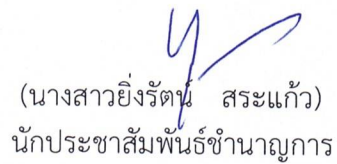 (นางสาวยิ่งรัตน์ สระแก้ว)
นักประชาสัมพันธ์ชำนาญการ